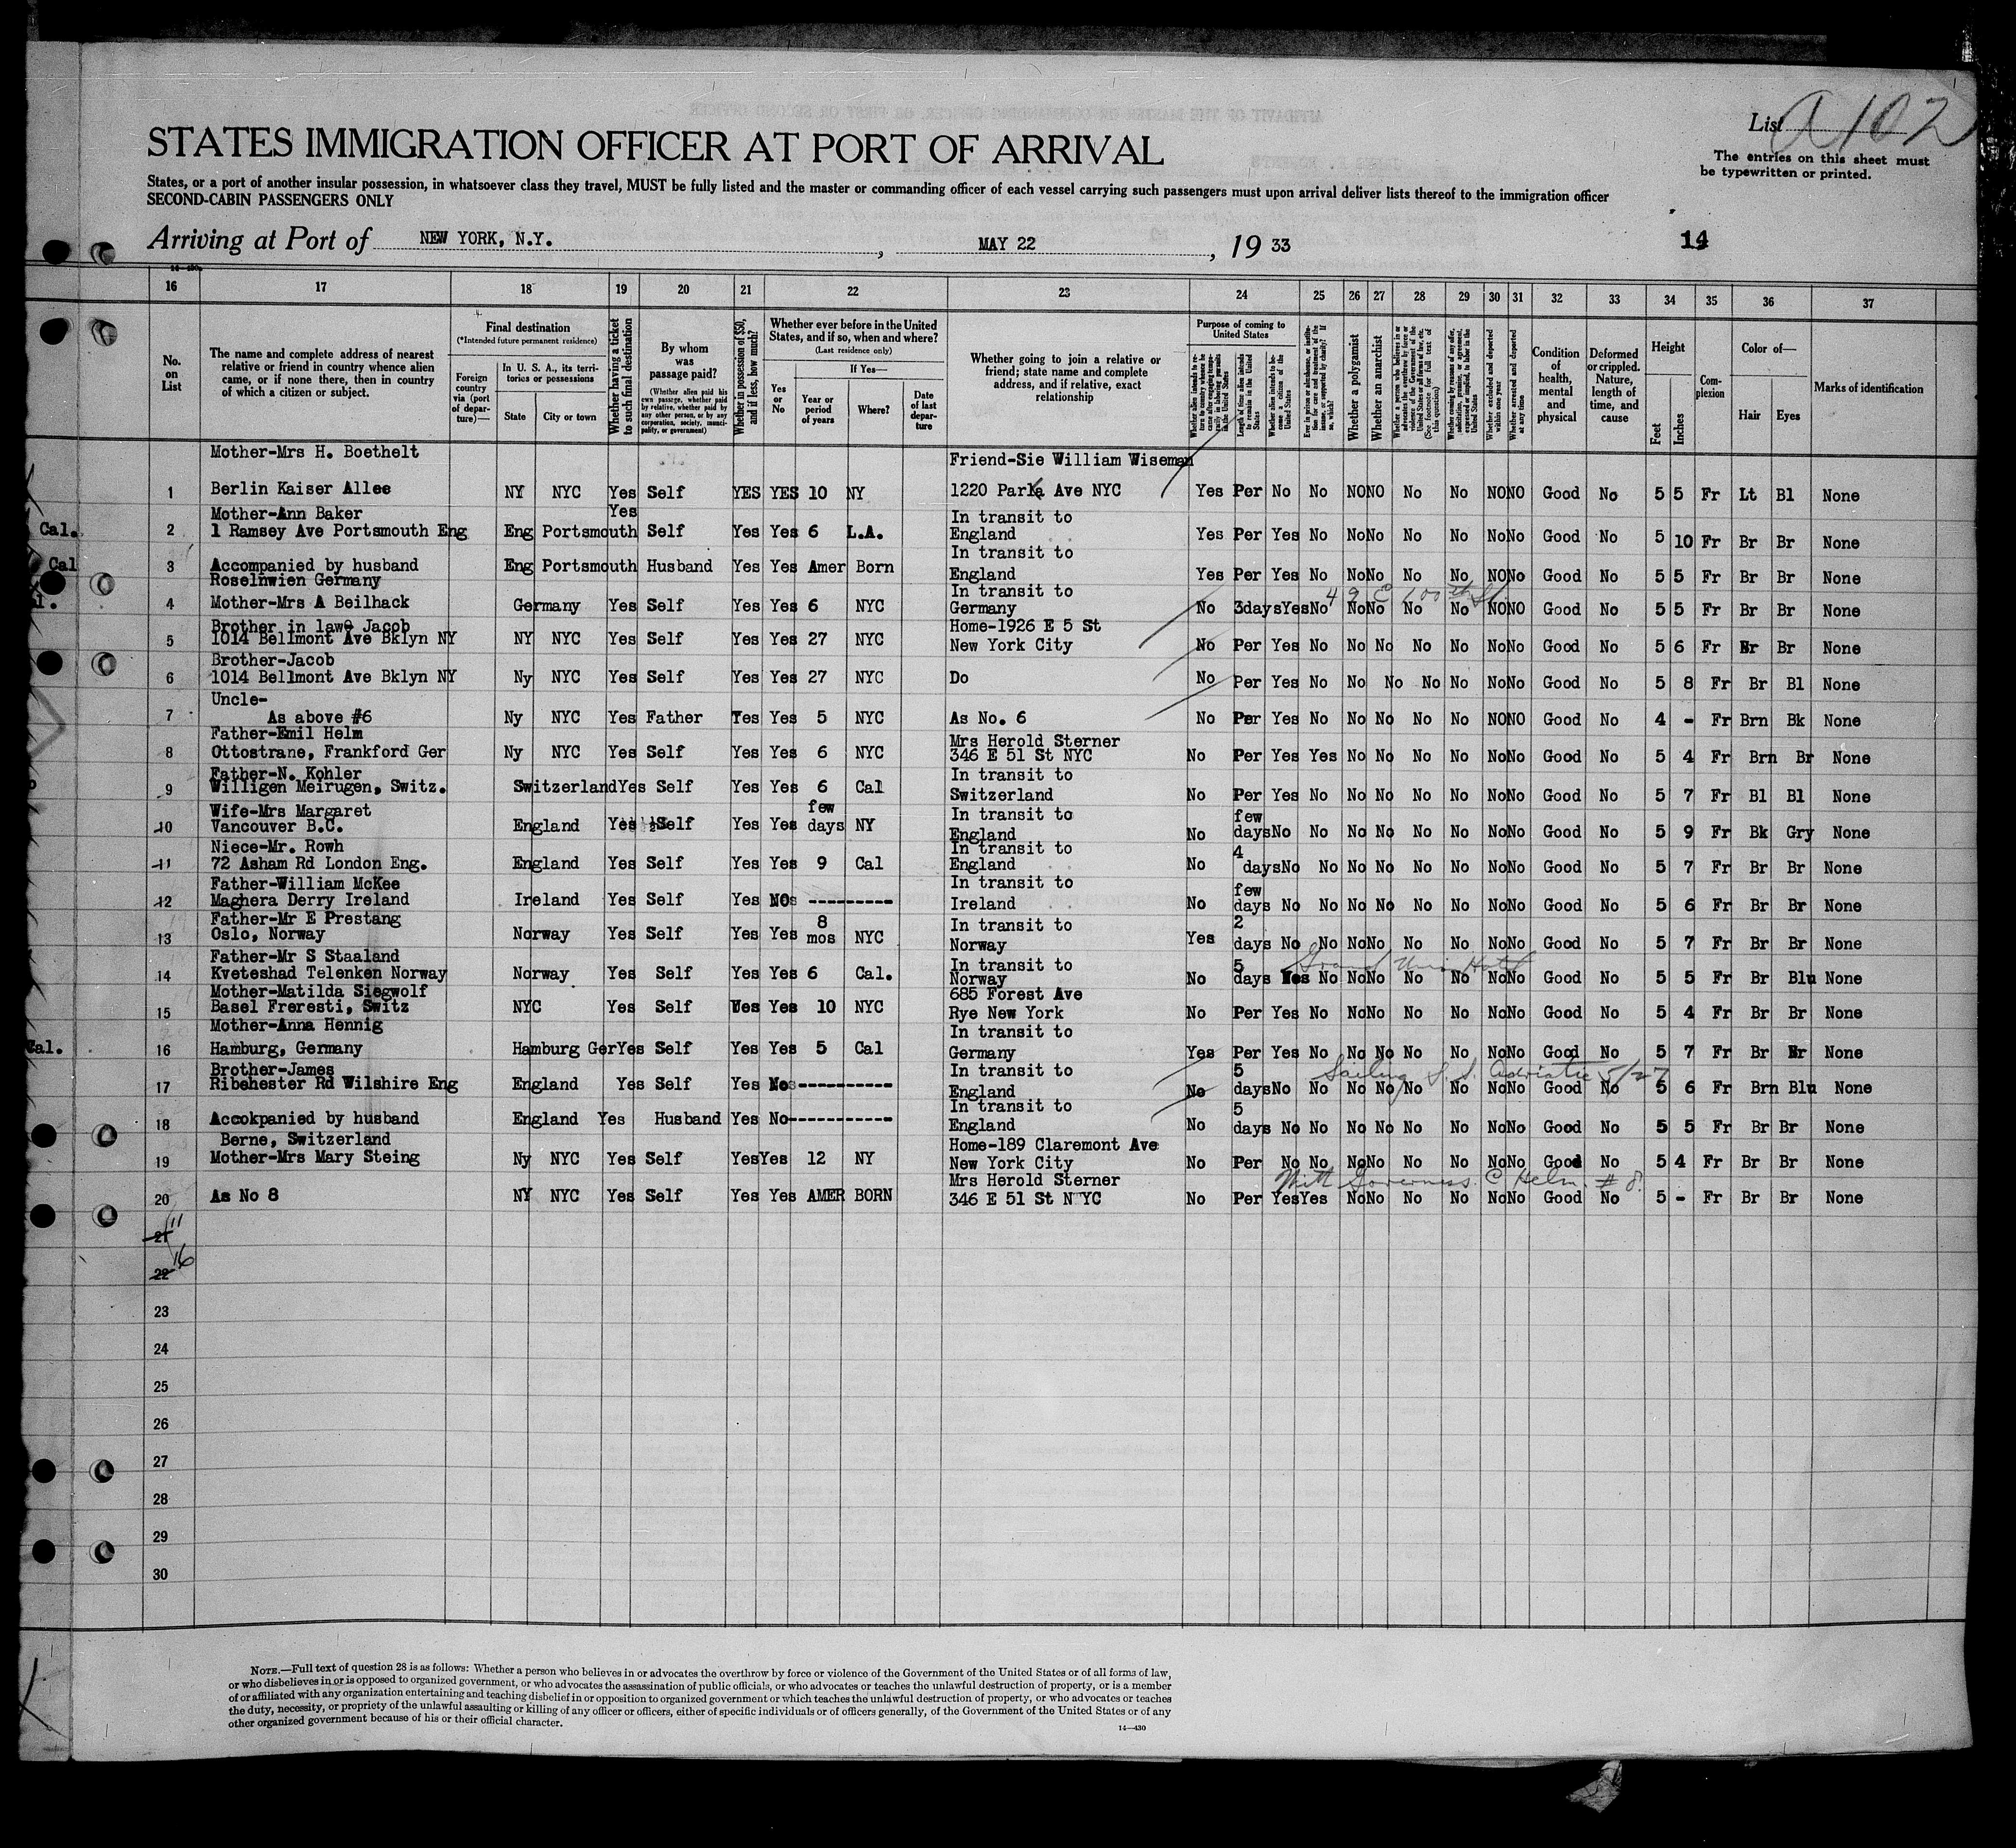 List A 102
The entries on this sheet must
be typewritten or printed.
STATES IMMIGRATION OFFICER AT PORT OF ARRIVAL
States, or a port of another insular possession, in whatsoever class they travel, MUST be fully listed and the master or commanding officer of each vessel carrying such passengers must upon arrival deliver lists thereof to the immigration officer
SECOND-CABIN PASSENGERS ONLY
Arriving at Port of NEW YORK, N.Y., MAY 22, 19 33
14
16 17 18 19 20 21 22 23 24 25 26 27 28 29 30 31 32 33 34 35 36 37
No. on List
The name and complete address of nearest relative or friend in country whence alien came, or if none there, then in country of which a citizen or subject.
Final destination
(*Intended future permanent residence)
Foreign country via (port of departure)—
In U. S. A., its territories or possessions
State
City or town
Whether having a ticket to such final destination
By whom was passage paid?
(Whether alien paid his own passage, whether paid by relative, whether paid by any other person, or by any corporation, society, municipality, or government)
Whether in possession of $50, and if less, how much?
Whether ever before in the United States, and if so, when and where?
(Last residence only)
Yes or No
If Yes—
Year or period of years
Where?
Date of last departure
Whether going to join a relative or friend; state name and complete address, and if relative, exact relationship
Purpose of coming to United States
Length of time alien intends to remain in the United States
Whether alien intends to become a citizen of the United States
Whether a polygamist
Whether an anarchist
Whether excluded and deported within one year
Whether arrested and deported at any time
Condition of health, mental and physical
Deformed or crippled. Nature, length of time, and cause
Height
Feet
Inches
Complexion
Color of—
Hair
Eyes
Marks of identification
Mother-Mrs H. Boethelt Friend-Sie William Wiseman
1 Berlin Kaiser Allee NY NYC Yes Self YES YES 10 NY 1220 Park Ave NYC Yes Per No No NO NO No No NO NO Good No 5 5 Fr Lt Bl None
Mother-Ann Baker Yes In transit to
Cal. 2 1 Ramsey Ave Portsmouth Eng Eng Portsmouth Self Yes Yes 6 L.A. England Yes Per Yes No No No No No No No Good No 5 10 Fr Br Br None
In transit to
Cal 3 Accompanied by husband Eng Portsmouth Husband Yes Yes Amer Born England Yes Per Yes No No No No No NO No Good No 5 5 Fr Br Br None
Roselnwien Germany In transit to 49 E 100th St
4 Mother-Mrs A Beilhack Germany Yes Self Yes Yes 6 NYC Germany No 3days Yes No No No No No NO NO Good No 5 5 Fr Br Br None
Brother in lawe Jacob Home-1926 E 5 St
5 1014 Bellmont Ave Bklyn NY NY NYC Yes Self Yes Yes 27 NYC New York City No Per Yes No No No No No No No Good No 5 6 Fr Br Br None
Brother-Jacob
6 1014 Bellmont Ave Bklyn NY Ny NYC Yes Self Yes Yes 27 NYC Do No Per Yes No No No No No No No Good No 5 8 Fr Br Bl None
Uncle-
7 As above #6 Ny NYC Yes Father Yes Yes 5 NYC As No. 6 No Per Yes No No No No No NO NO Good No 4 - Fr Brn Bk None
Father-Emil Helm Mrs Herold Sterner
8 Ottostrane, Frankford Ger Ny NYC Yes Self Yes Yes 6 NYC 346 E 51 St NYC No Per Yes Yes No No No No No No Good No 5 4 Fr Brn Br None
Father-N. Kohler In transit to
9 Willigen Meirugen, Switz. Switzerland Yes Self Yes Yes 6 Cal Switzerland No Per Yes No No No No No No No Good No 5 7 Fr Bl Bl None
Wife-Mrs Margaret few In transit to few
10 Vancouver B.C. England Yes Self Yes Yes days NY England No days No No No No No No No No Good No 5 9 Fr Bk Gry None
Niece-Mr. Rowh In transit to 4
11 72 Asham Rd London Eng. England Yes Self Yes Yes 9 Cal England No days No No No No No No No No Good No 5 7 Fr Br Br None
Father-William McKee In transit to few
12 Maghera Derry Ireland Ireland Yes Self Yes NO ---------- Ireland No days No No No No No No No No Good No 5 6 Fr Br Br None
Father-Mr E Prestang 8 In transit to 2
13 Oslo, Norway Norway Yes Self Yes Yes mos NYC Norway Yes days No No No No No No No No Good No 5 7 Fr Br Br None
Father-Mr S Staaland In transit to 5 Grand Union Hotel
14 Kveteshad Telenken Norway Norway Yes Self Yes Yes 6 Cal. Norway No days Yes No No No No No No No Good No 5 5 Fr Br Blu None
Mother-Matilda Siegwolf 685 Forest Ave
15 Basel Freresti, Switz NYC Yes Self Yes Yes 10 NYC Rye New York No Per Yes No No No No No No No Good No 5 4 Fr Br Br None
Mother-Anna Hennig In transit to
Cal. 16 Hamburg, Germany Hamburg Ger Yes Self Yes Yes 5 Cal Germany Yes Per Yes No No No No No No No Good No 5 7 Fr Br Br None
Brother-James In transit to 5 Sailing S.S. Adriatic 5/27
17 Ribehester Rd Wilshire Eng England Yes Self Yes No ----------- England No days No No No No No No No No Good No 5 6 Fr Brn Blu None
In transit to 5
18 Accokpanied by husband England Yes Husband Yes No ------------ England No days No No No No No No No No Good No 5 5 Fr Br Br None
Berne, Switzerland Home-189 Claremont Ave
19 Mother-Mrs Mary Steing Ny NYC Yes Self Yes Yes 12 NY New York City No Per No No No No No No No No Good No 5 4 Fr Br Br None
Mrs Herold Sterner With Governess C Helm. # 8.
20 As No 8 NY NYC Yes Self Yes Yes AMER BORN 346 E 51 St N YC No Per Yes Yes No No No No No No Good No 5 - Fr Br Br None
11
21
16
22
23
24
25
26
27
28
29
30
NOTE.—Full text of question 28 is as follows: Whether a person who believes in or advocates the overthrow by force or violence of the Government of the United States or of all forms of law,
or who disbelieves in or is opposed to organized government, or who advocates the assassination of public officials, or who advocates or teaches the unlawful destruction of property, or is a member
of or affiliated with any organization entertaining and teaching disbelief in or opposition to organized government or which teaches the unlawful destruction of property, or who advocates or teaches
the duty, necessity, or propriety of the unlawful assaulting or killing of any officer or officers, either of specific individuals or of officers generally, of the Government of the United States or of any
other organized government because of his or their official character.
14—430